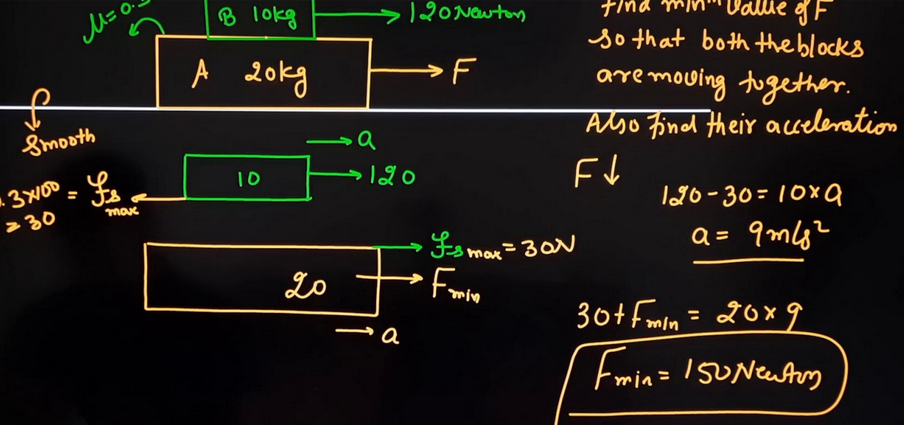 B 10kg → 120 Newton
A 20kg → F
Smooth
find min^m value of F
so that both the blocks
are moving together.
Also find their acceleration
F↓
→ a
10 → 120
.3×100 = fs max
= 30
120 - 30 = 10×a
a = 9 m/s²
fs max = 30N
20
Fmin
→ a
30 + Fmin = 20 × 9
Fmin = 150 Newton